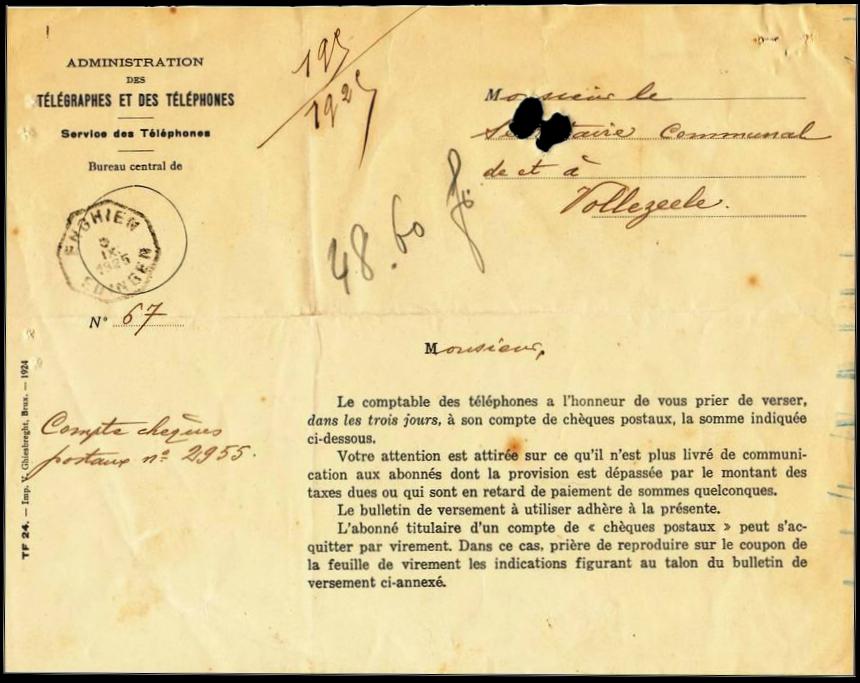 ADMINISTRATION
DES
TÉLÉGRAPHES ET DES TÉLÉPHONES
Service des Téléphones
Bureau central de
ENGHIEN
1925
EDINGEN
N° 67
195
1925
48.60 fr.
Monsieur le
Communal
de et à
Vollezeele.
Monsieur,
Compte chèques
postaux n° 2955.
TF 24. — Imp. V. Ghiesbreght, Brux. — 1924
Le comptable des téléphones a l'honneur de vous prier de verser,
dans les trois jours, à son compte de chèques postaux, la somme indiquée
ci-dessous.
Votre attention est attirée sur ce qu'il n'est plus livré de communi-
cation aux abonnés dont la provision est dépassée par le montant des
taxes dues ou qui sont en retard de paiement de sommes quelconques.
Le bulletin de versement à utiliser adhère à la présente.
L'abonné titulaire d'un compte de « chèques postaux » peut s'ac-
quitter par virement. Dans ce cas, prière de reproduire sur le coupon de
la feuille de virement les indications figurant au talon du bulletin de
versement ci-annexé.